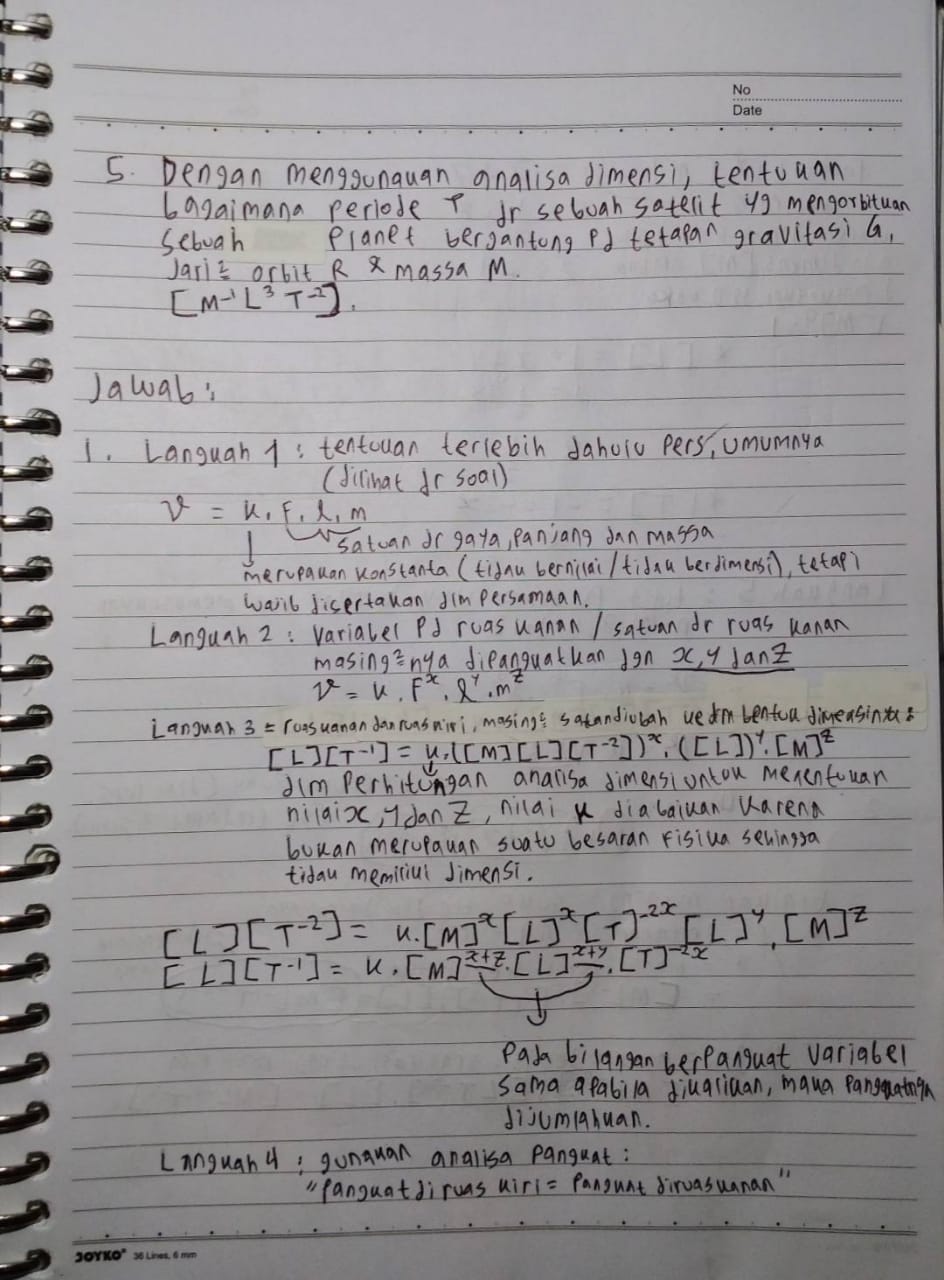 No
Date
5. Dengan menggunakan analisa dimensi, tentukan
bagaimana periode T dr sebuah satelit yg mengorbitkan
sebuah planet bergantung pd tetapan gravitasi G,
Jari² orbit R & massa M.
[M⁻¹ L³ T⁻²].
Jawab :
1. Langkah 1 : tentukan terlebih dahulu pers, umumnya
(dilihat dr soal)
v = k. F. l. m
satuan dr gaya, panjang dan massa
merupakan konstanta (tidak bernilai / tidak berdimensi), tetapi
wajib disertakan dlm persamaan.
Langkah 2 : Variabel pd ruas kanan / satuan dr ruas kanan
masing²nya dipangkatkan dgn x, y dan z
v = k. Fˣ. lʸ. mᶻ
Langkah 3 = ruas kanan dan ruas kiri, masing² satuan diubah ke dlm bentuk dimensinya :
[L][T⁻¹] = k.([M][L][T⁻²])ˣ. ([L])ʸ. [M]ᶻ
dlm perhitungan analisa dimensi untuk menentukan
nilai x, y dan z, nilai k diabaikan karena
bukan merupakan suatu besaran fisika sehingga
tidak memiliki dimensi.
[L][T⁻²] = k.[M]ˣ[L]ˣ[T]⁻²ˣ[L]ʸ. [M]ᶻ
[L][T⁻¹] = k. [M]ˣ⁺ᶻ. [L]ˣ⁺ʸ. [T]⁻²ˣ
Pada bilangan berpangkat variabel
sama apabila dikalikan, maka pangkatnya
dijumlahkan.
Langkah 4 : gunakan analisa pangkat :
"pangkat di ruas kiri = pangkat diruas kanan"
JOYKO® 36 Lines, 6 mm